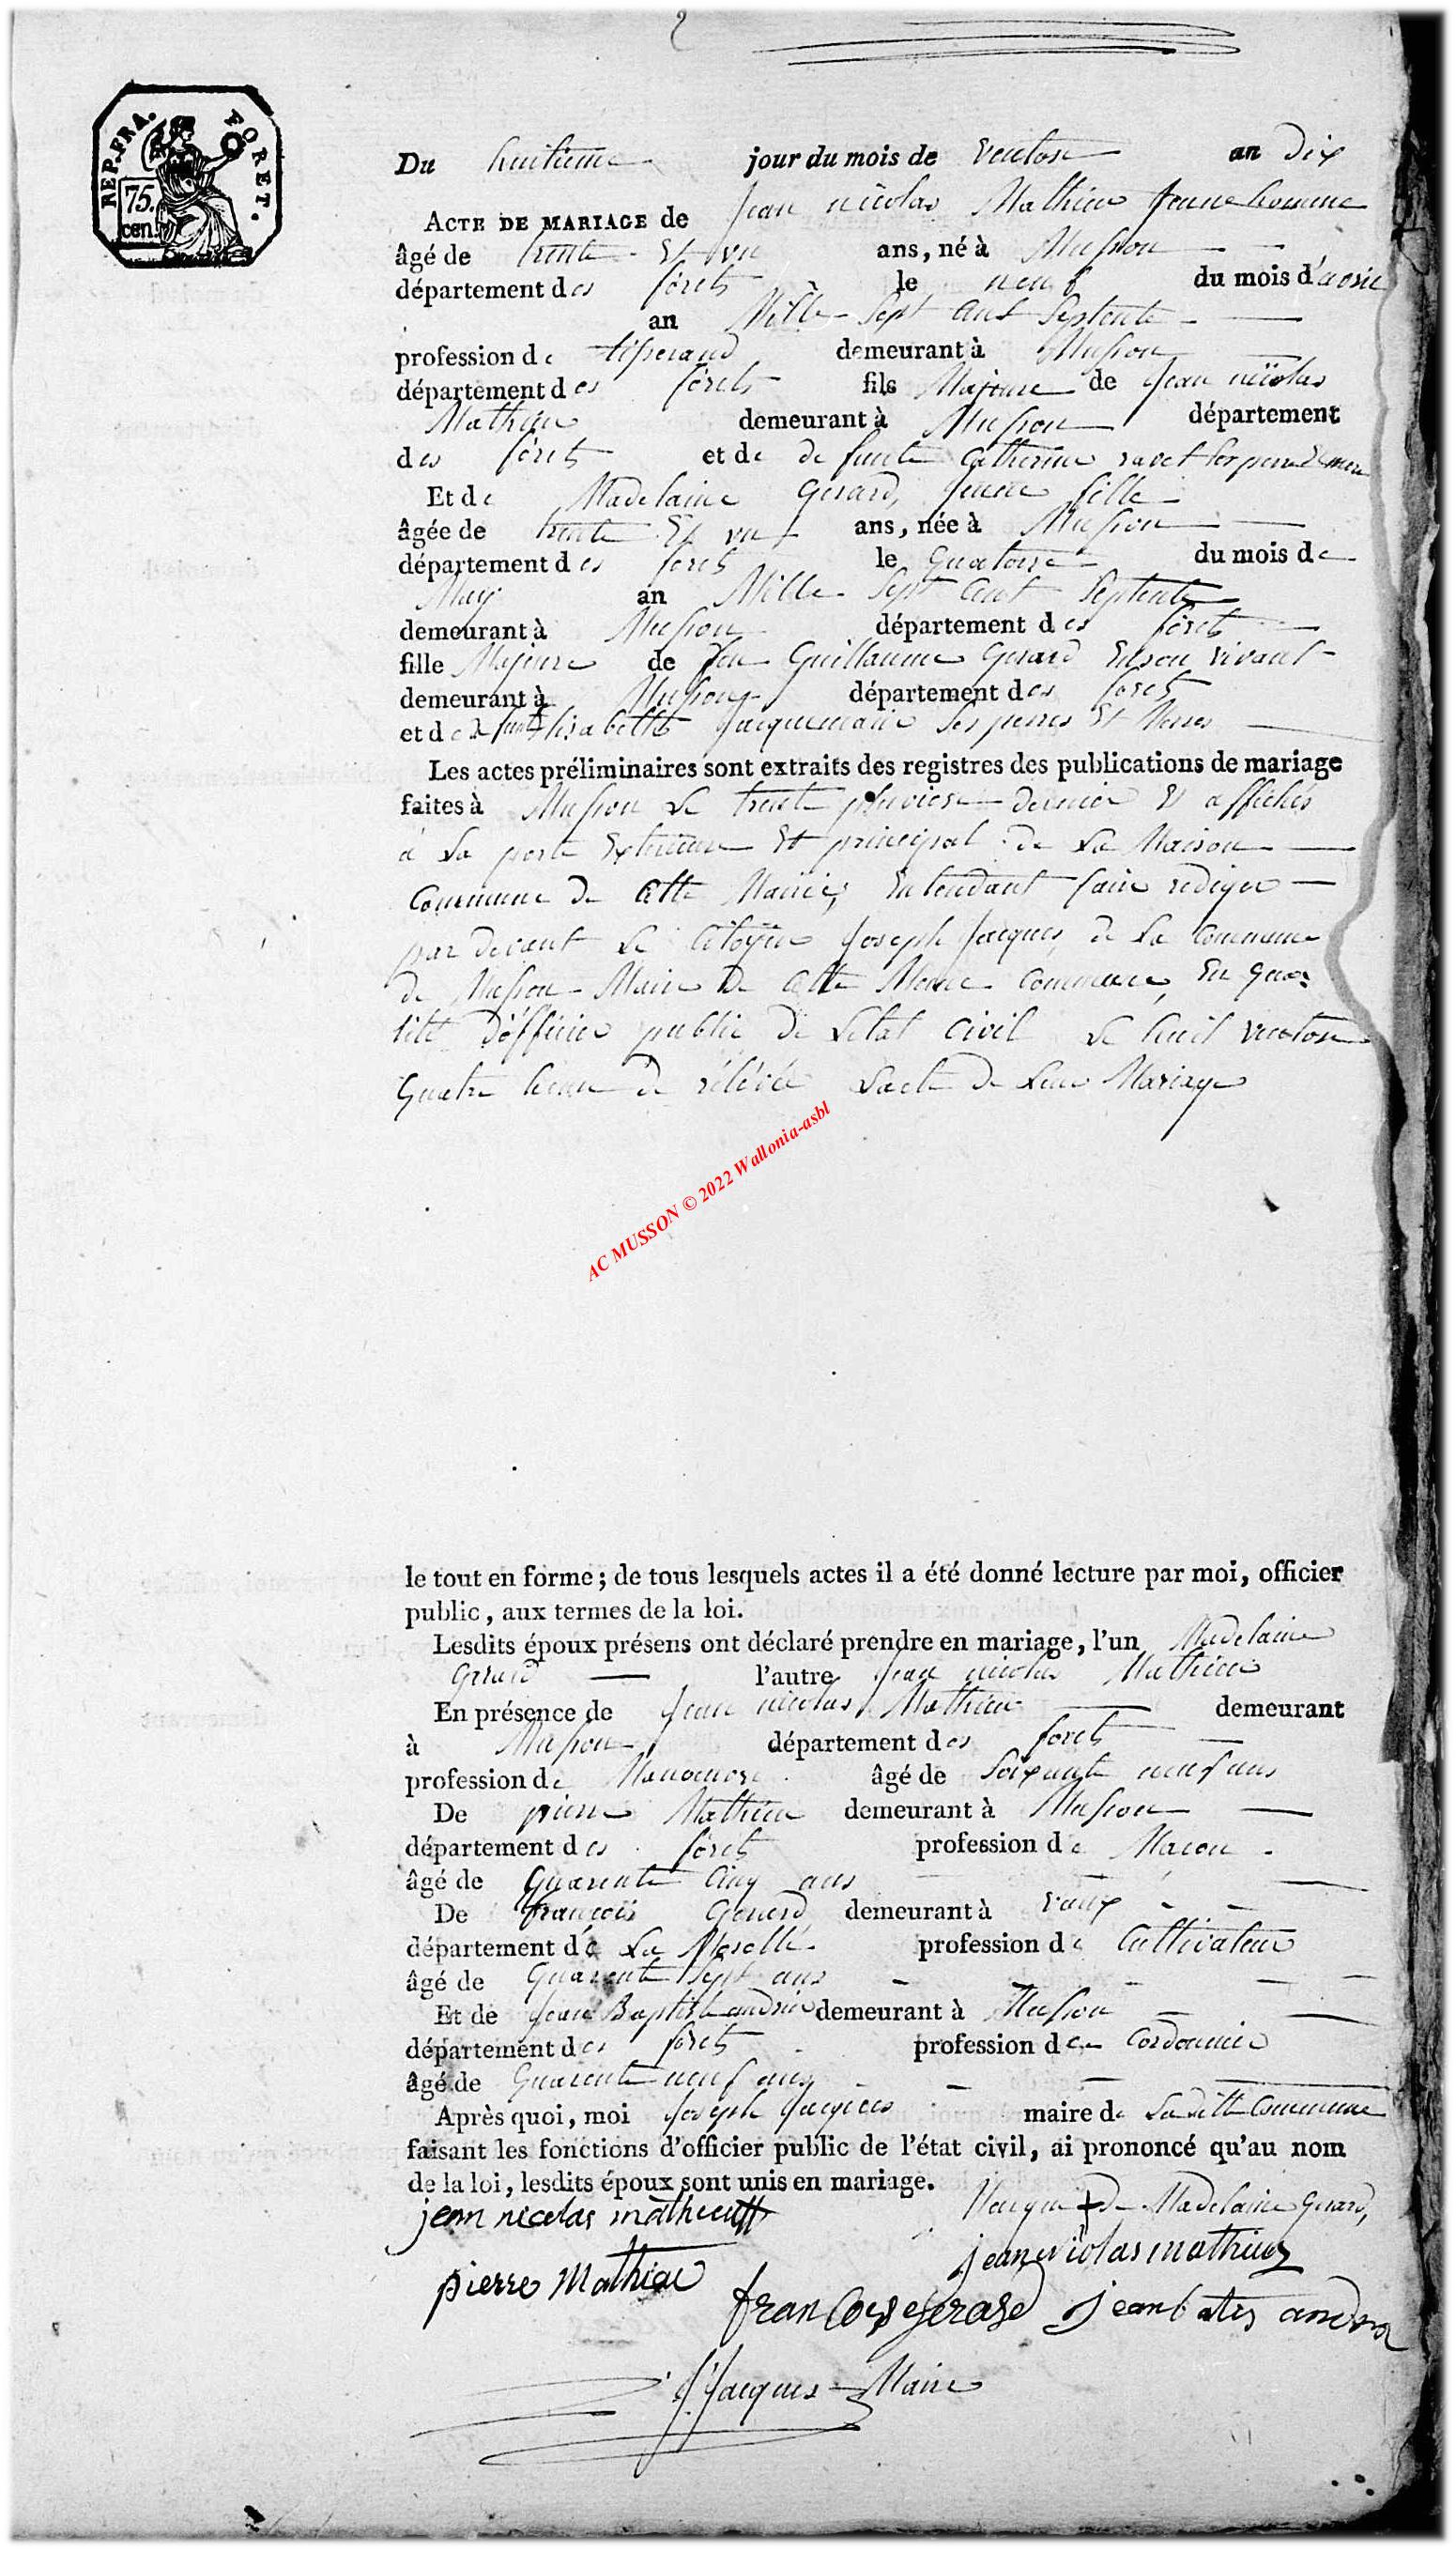 2
REP. FRA. FORET.
75. cen.
Du huitieme jour du mois de ventose an dix
ACTE DE MARIAGE de Jean nicolas Mathieu Jeune homme
âgé de trente Et un ans, né à Musson
département des forets le neuf du mois d'avril
an Mille Sept cent Septente
profession de tisserand demeurant à Musson
département des forets fils Majeure de Jean nicolas
Mathieu demeurant à Musson département
des forets et de de funte Catherine
Et de Madelaine Gerard, Jeune fille
âgée de trente Et un ans, née à Musson
département des forets le quatorse du mois de
May an Mille Sept Cent Septente
demeurant à Musson département des forets
fille Majeure de feu Guillaume Gerard En son vivant
demeurant à Musson département des forets
et de de funte Elisabette Jacquemain Ses peres Et Meres
Les actes préliminaires sont extraits des registres des publications de mariage
faites à Musson Le trente pluviose dernier Et affichés
a La porte Exterieure Et principal de La Maison
Commune de Cette Mairie, Entendant faire rediger
par devant Le Citoÿen Joseph Jacques de La Commune
de Musson Maire De Cette Meme Commune, En qua:
lité d'officier public de Letat Civil Le huit ventose
Quatre heure de rélévée Lacte de Leur Mariage
AC MUSSON © 2022 Wallonia-asbl
le tout en forme; de tous lesquels actes il a été donné lecture par moi, officier
public, aux termes de la loi.
Lesdits époux présens ont déclaré prendre en mariage, l'un Madelaine
Gerard l'autre Jean nicolas Mathieu
En présence de Jean nicolas Mathieu demeurant
à Musson département des forets
profession de Manoeuvre âgé de Soixante neuf ans
De pierre Mathieu demeurant à Musson
département des forets profession de Macon
âgé de Quarente Cinq ans
De francois Gerard demeurant à vaux
département de La Moselle profession de Cultivateur
âgé de Quarente Sept ans
Et de Jean Baptist andrin demeurant à Musson
département des forets profession de Cordonnier
âgé de Quarente neuf ans
Après quoi, moi Joseph Jacques maire de La ditte Commune
faisant les fonctions d'officier public de l'état civil, ai prononcé qu'au nom
de la loi, lesdits époux sont unis en mariage.
jean nicolas mathieu Marque + de Madelaine Gerard,
jean nicolas mathieu
pierre Mathieu
francois gerard jean batis
J Jacques Maire